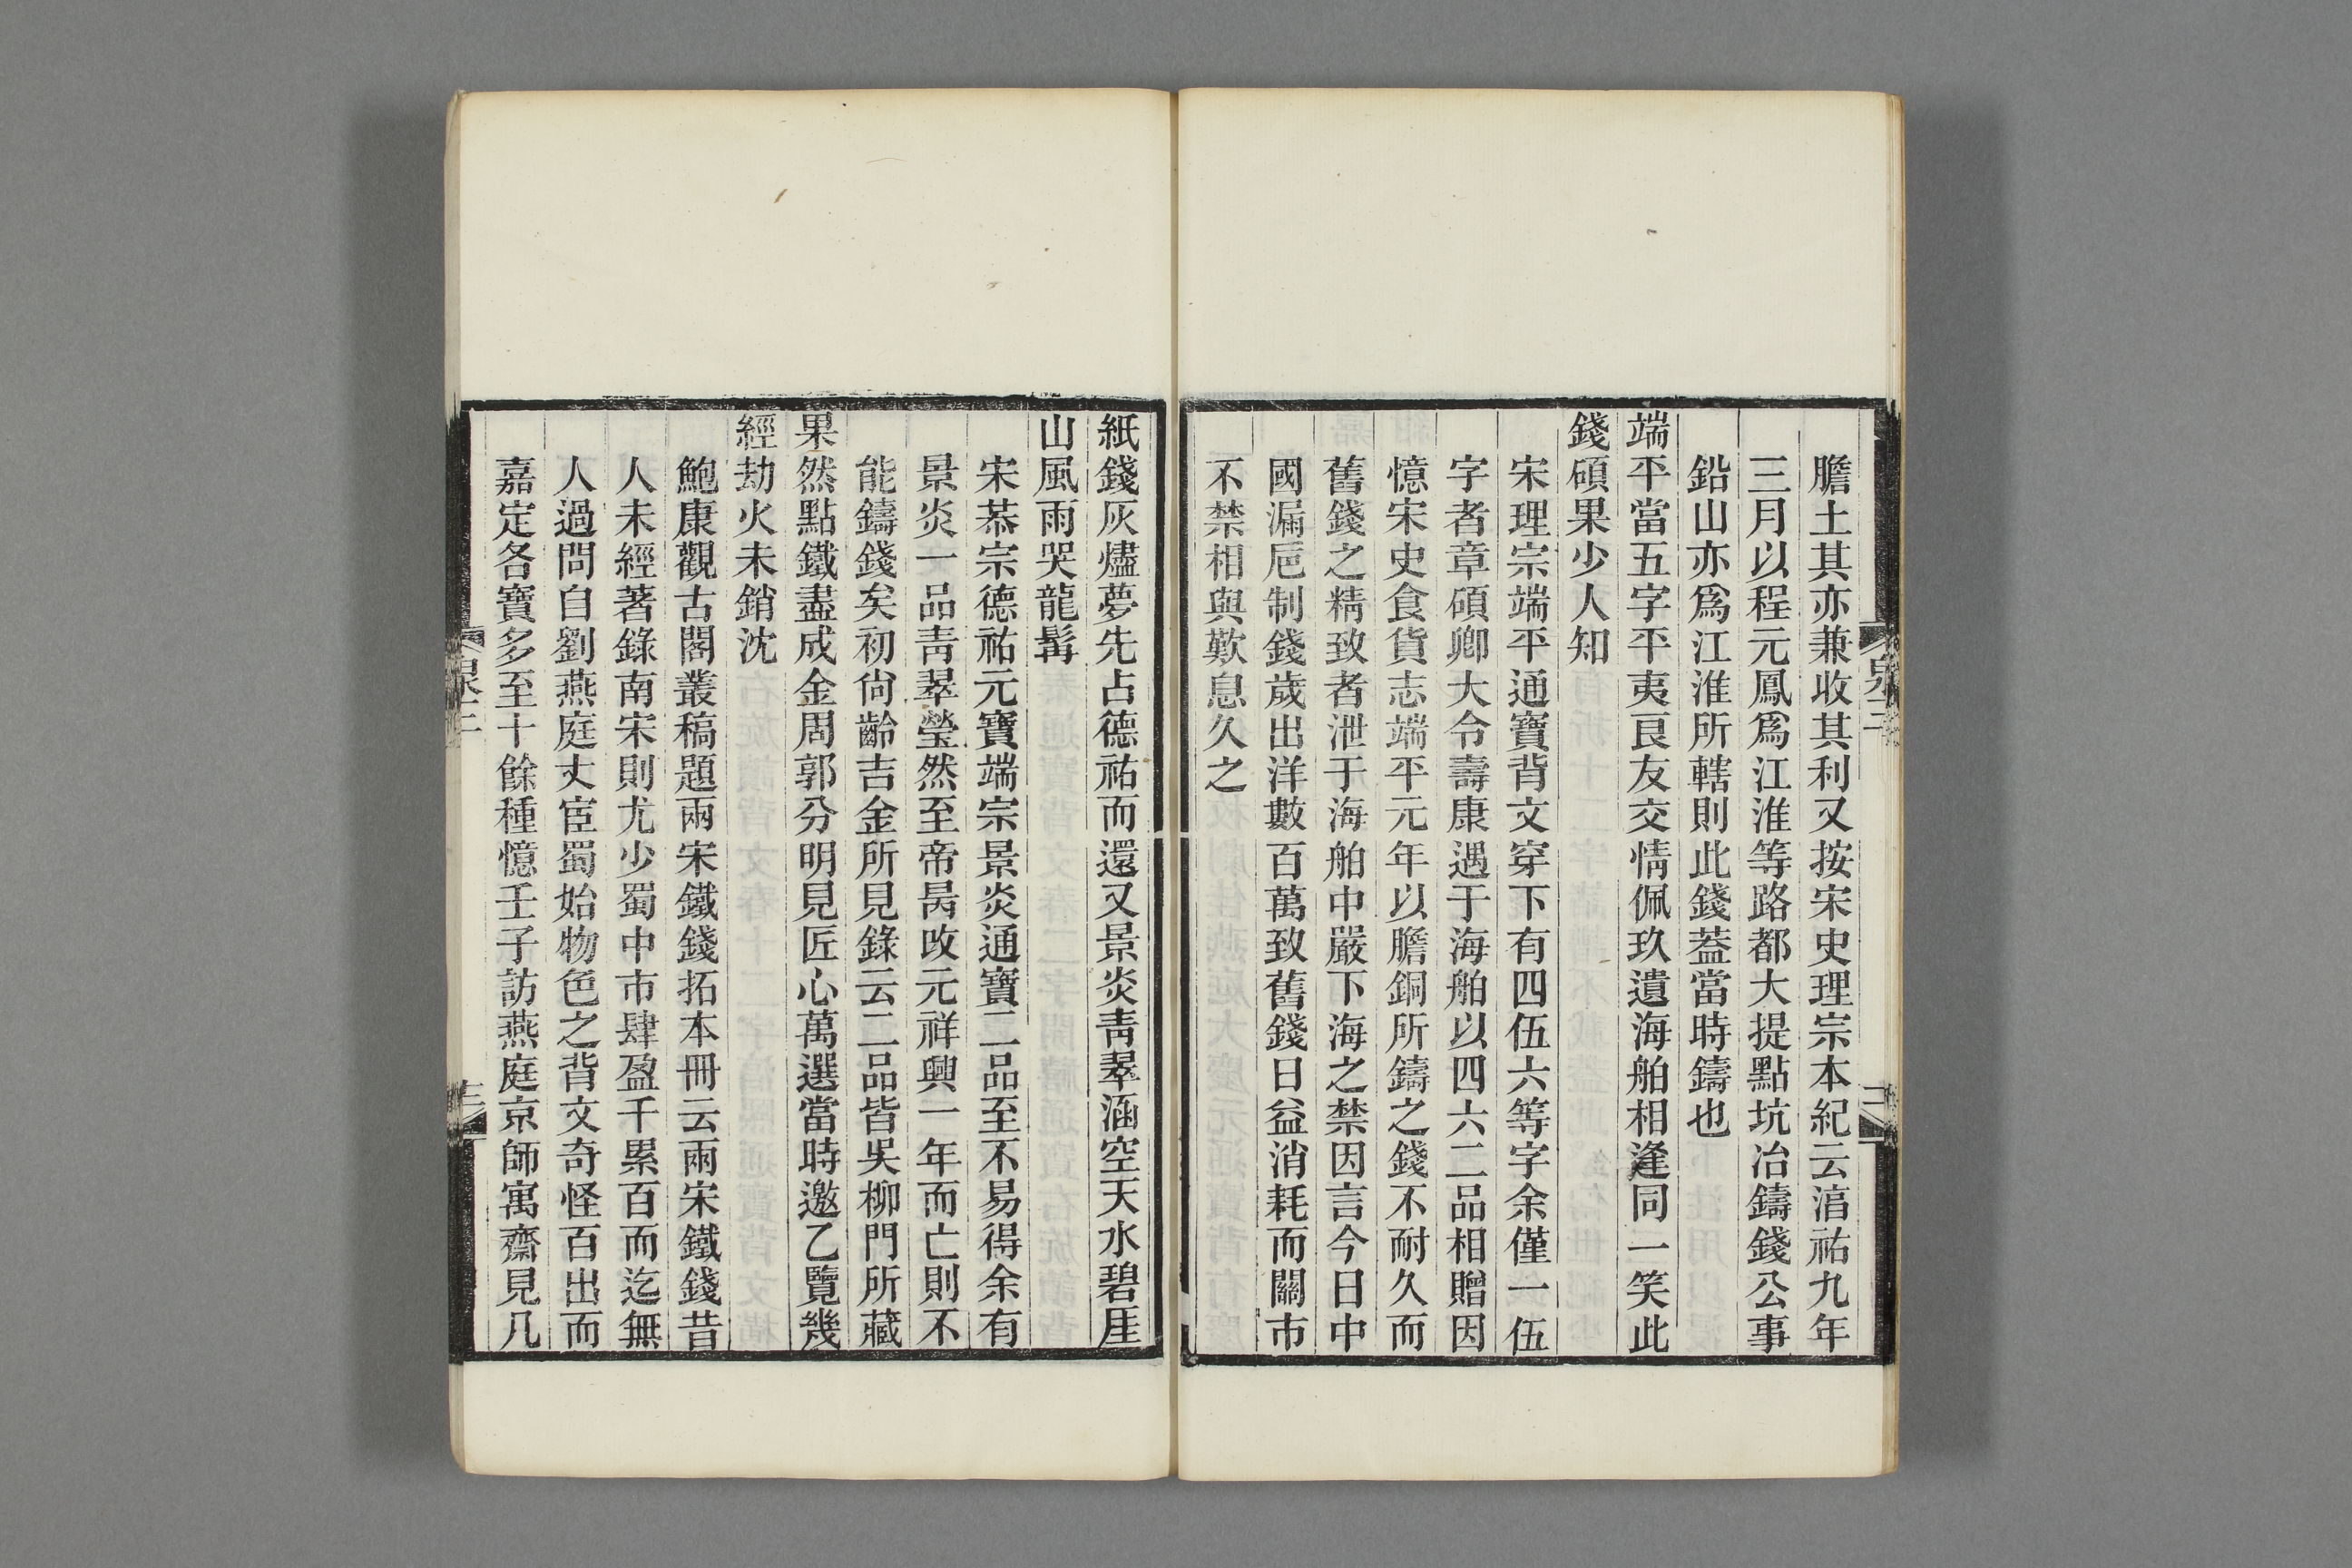 膽土其亦兼收其利又按宋史理宗本紀云淯祐九年
三月以程元鳳爲江淮等路都大提點坑冶鑄錢公事
鉛山亦爲江淮所轄則此錢葢當時鑄也
端平當五字平夷艮友交情佩玖遺海舶相逢同一笑此
錢碩果少人知
宋理宗端平通寶背文穿下有四伍六等字余僅一伍
字者章碩卿大令壽康遇于海舶以四六二品相贈因
憶宋史食貨志端平元年以膽銅所鑄之錢不耐久而
舊錢之精致者泄于海舶中嚴下海之禁因言今日中
國漏巵制錢歲出洋數百萬致舊錢日益消耗而關市
不禁相與歎息久之
紙錢灰燼夢先占德祐而還又景炎靑翠涵空天水碧厓
山風雨哭龍髯
宋恭宗德祐元寶端宗景炎通寶二品至不易得余有
景炎一品靑翠瑩然至帝昺改元祥興一年而亡則不
能鑄錢矣初尙齡吉金所見錄云二品皆吳柳門所藏
果然點鐵盡成金周郭分明見匠心萬選當時邀乙覽幾
經劫火未銷沈
鮑康觀古閣叢稿題兩宋鐵錢拓本冊云兩宋鐵錢昔
人未經著錄南宋則尤少蜀中市肆盈千累百而迄無
人過問自劉燕庭丈宦蜀始物色之背文奇怪百出而
嘉定各寶多至十餘種憶壬子訪燕庭京師寓齋見几